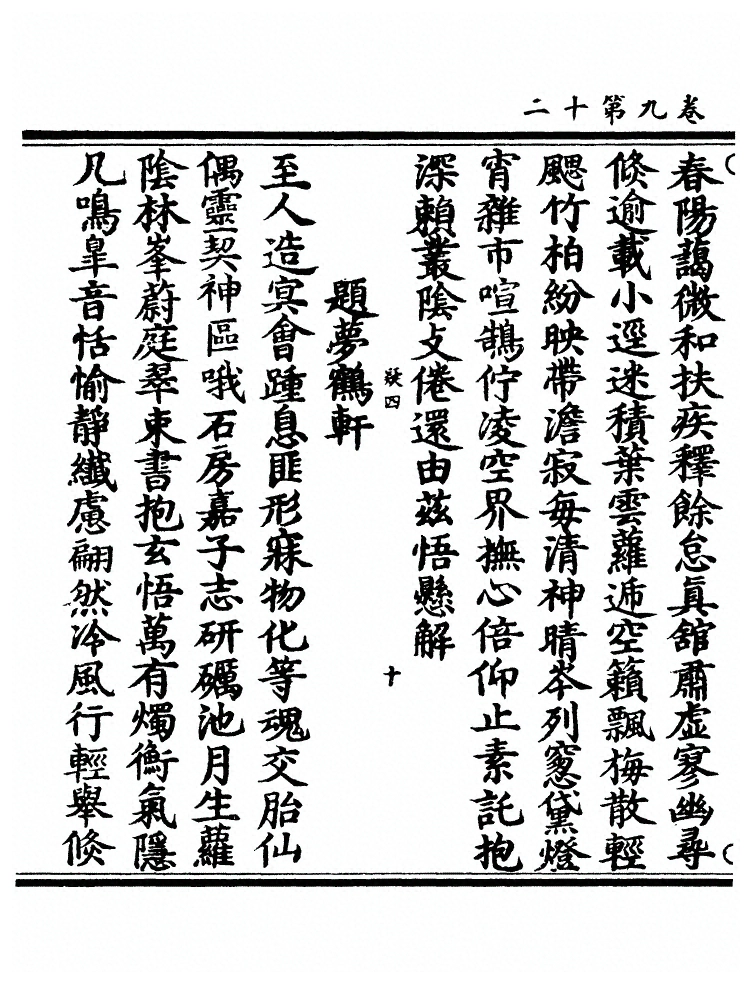 卷九第十二
春陽藹微和扶疾釋餘怠真舘肅虛寥幽尋
倐逾載小逕迷積葉雲蘿遞空籟飄梅散輕
颸竹柏紛映帶澹寂每清神晴岑列窓黛燈
宵雜市喧鵲佇凌空界撫心倍仰止素託抱
深賴叢陰攴倦還由茲悟懸解
疑四
十
題夢鶴軒
至人造㝠會踵息匪形寐物化等魂交胎仙
偶靈契神區哦石房嘉子志研礪池月生蘿
陰林峯蔚庭翠束書抱玄悟萬有燭衡氣隱
几鳴臯音恬愉靜纖慮翩然冷風行輕舉倐